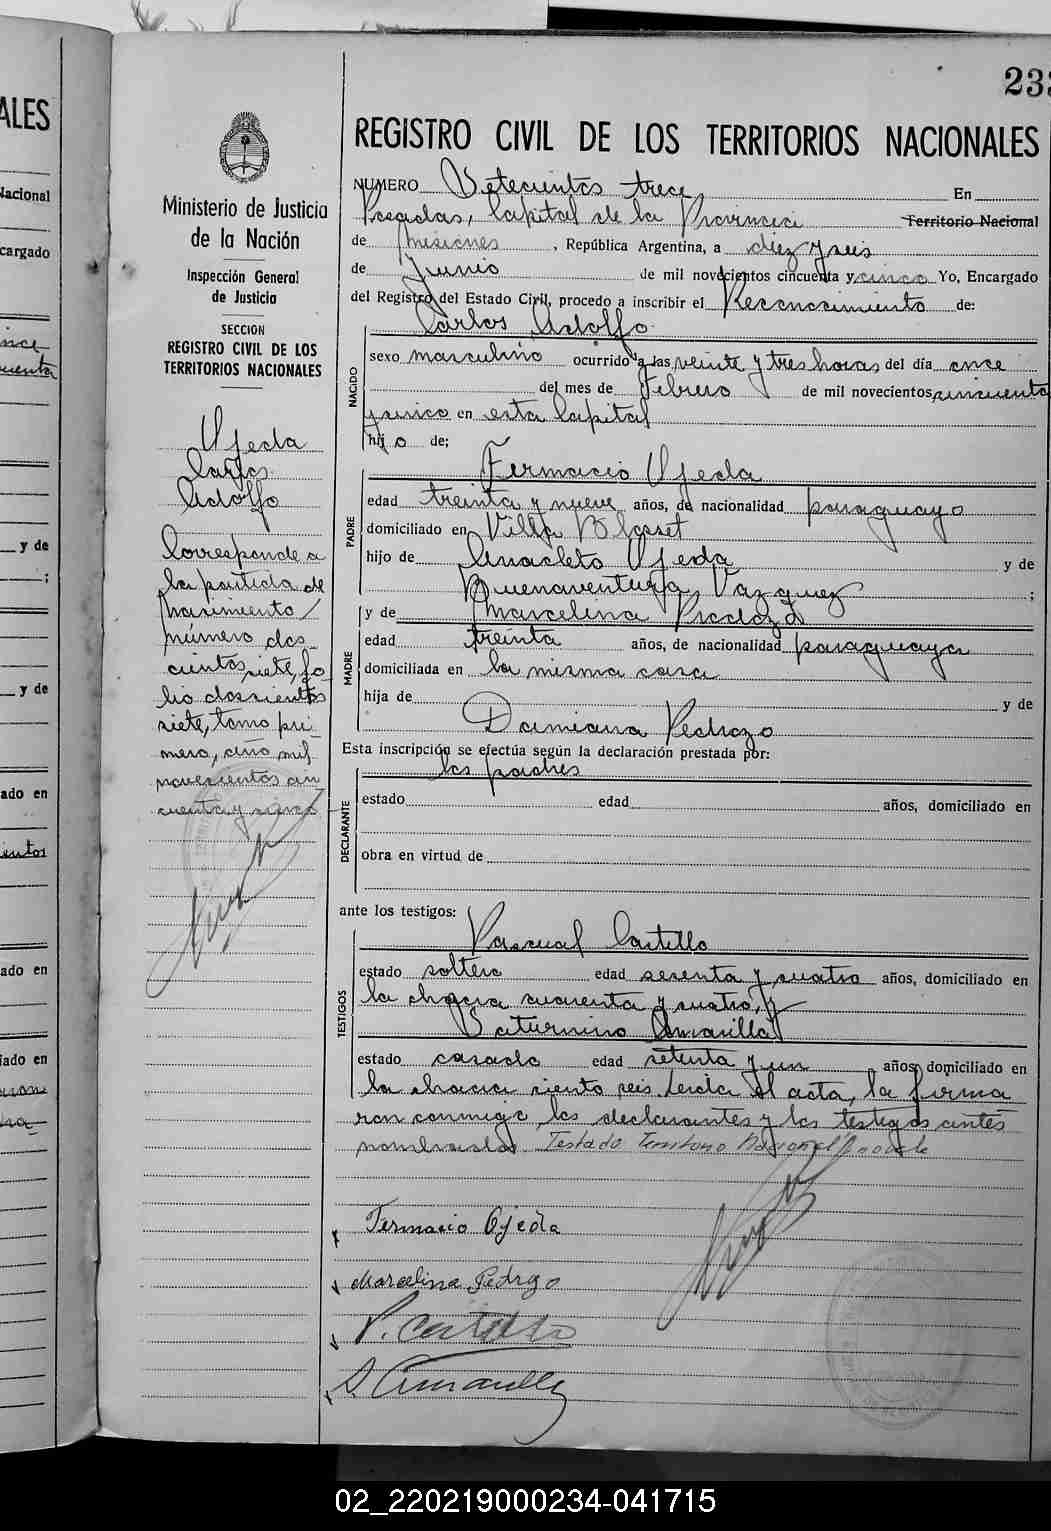 233
REGISTRO CIVIL DE LOS TERRITORIOS NACIONALES
NUMERO Setecientos trece En
Posadas, Capital de la Provincia Territorio Nacional
de Misiones, República Argentina, a diez y seis
de Junio de mil novecientos cincuenta y cinco Yo, Encargado
del Registro del Estado Civil, procedo a inscribir el Reconocimiento de:
Carlos Adolfo
NACIDO
sexo masculino ocurrido a las veinte y tres horas del día once
del mes de Febrero de mil novecientos cincuenta
y cinco en esta Capital
hijo de;
PADRE
Fermacio Ojeda
edad treinta y nueve años, de nacionalidad paraguayo
domiciliado en Villa Blosset
hijo de Anacleto Ojeda y de
Buenaventura Vazquez ;
MADRE
y de Marcelina Pedozo
edad treinta años, de nacionalidad paraguaya
domiciliada en la misma casa
hija de y de
Damiana Pedrozo
Esta inscripción se efectúa según la declaración prestada por:
los padres
DECLARANTE
estado edad años, domiciliado en
obra en virtud de
ante los testigos:
TESTIGOS
Pascual Castillo
estado soltero edad sesenta y cuatro años, domiciliado en
la chacra cuarenta y cuatro, y
Saturnino Amarilla
estado casado edad setenta y un años, domiciliado en
la chacra ciento seis. Leida el acta, la firma
ron conmigo los declarantes y los testigos antes
nombrados. Testado Territorio Nacional
Fermacio Ojeda
Marcelina Pedrozo
P. Castillo
S. Amarilla
Ministerio de Justicia
de la Nación
Inspección General
de Justicia
SECCIÓN
REGISTRO CIVIL DE LOS
TERRITORIOS NACIONALES
Ojeda
Carlos
Adolfo
Corresponde a
la partida de
nacimiento
número dos-
cientos siete, fo-
lio doscientos
siete, tomo pri
mero, año mil
novecientos cin
cuenta y cinco
ALES
Nacional
cargado
y de
;
y de
ado en
ientos
ado en
iado en
02_220219000234-041715